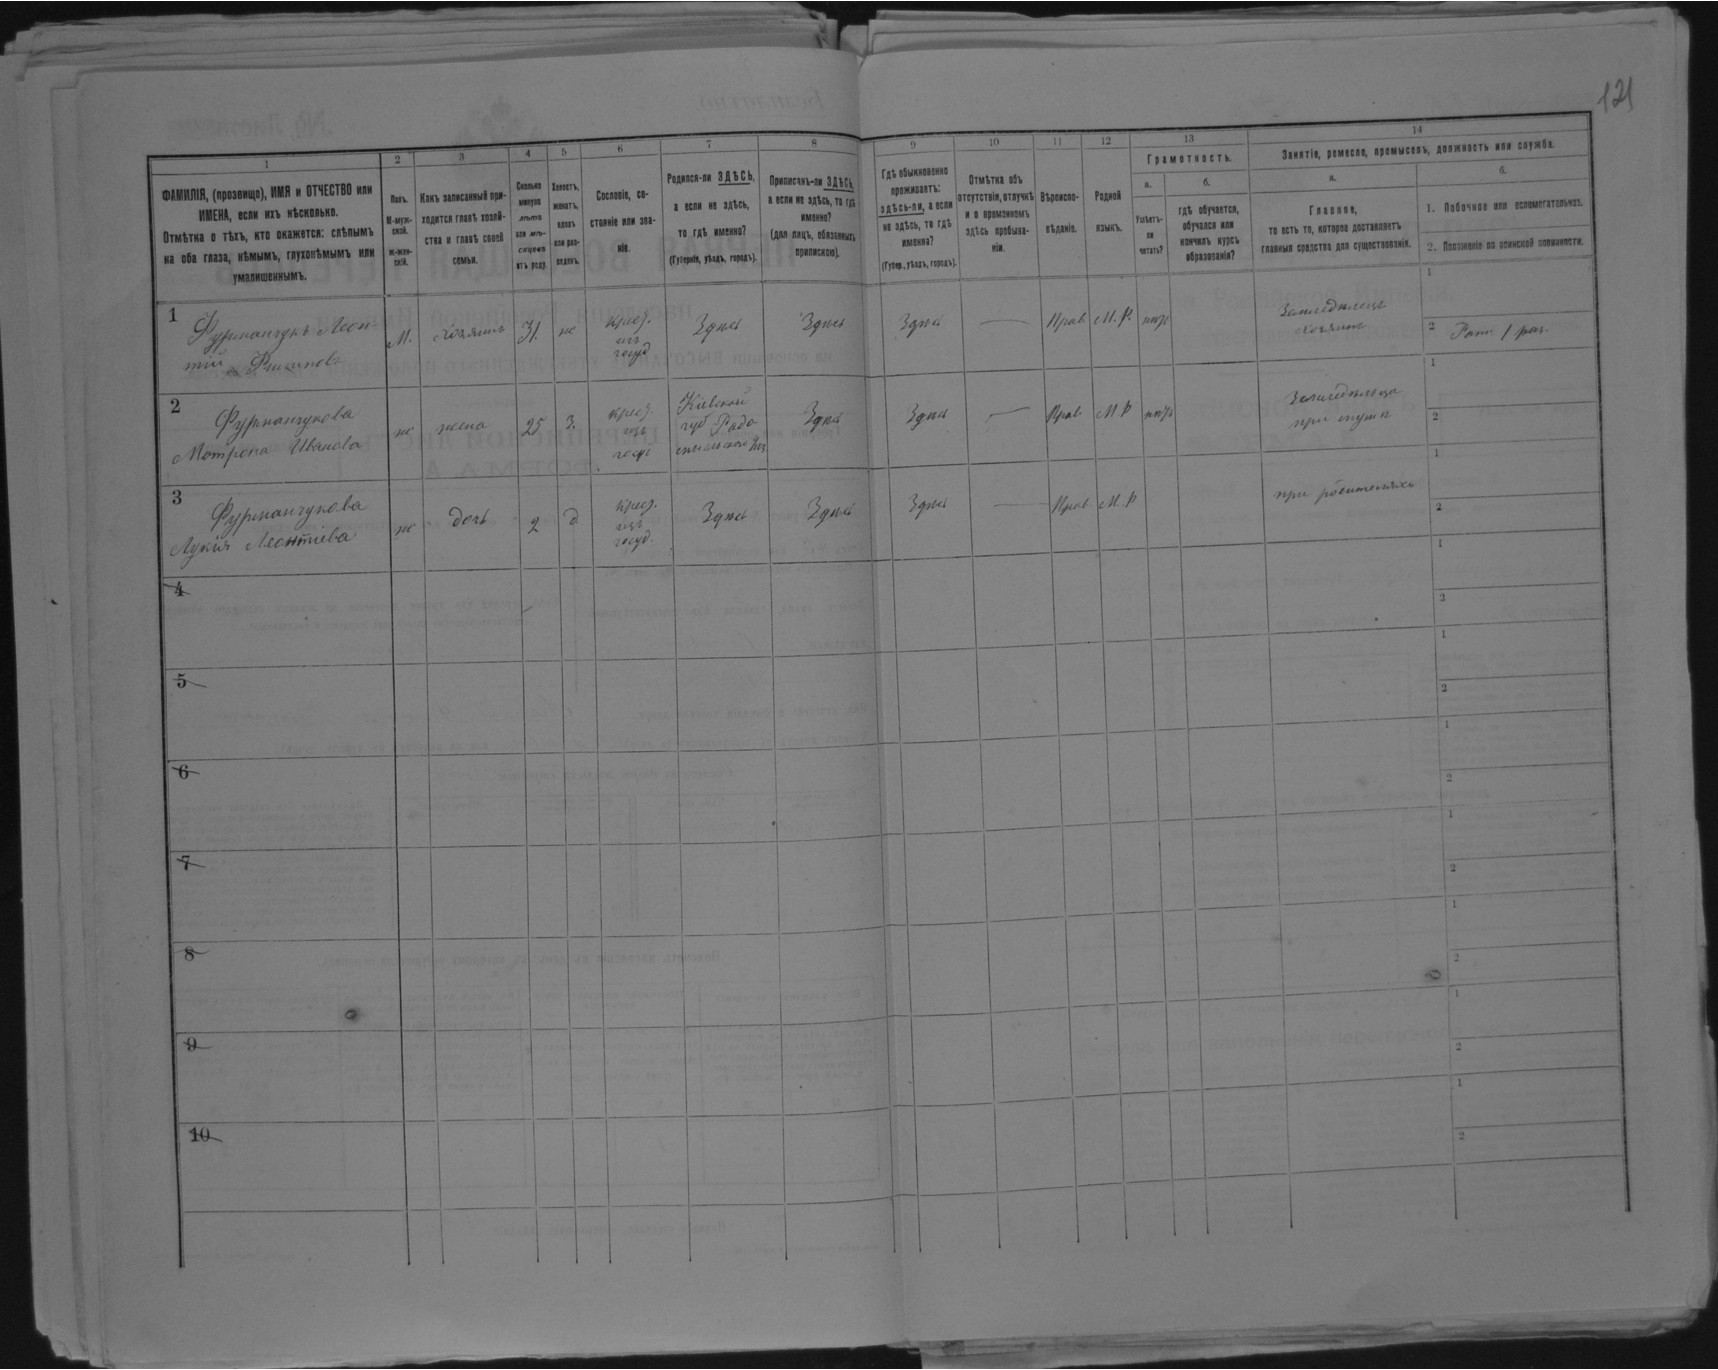 121
1
2
3
4
5
6
7
8
9
10
11
12
13
14
ФАМИЛІЯ, (прозвище), ИМЯ и ОТЧЕСТВО или
ИМЕНА, если ихъ нѣсколько.
Отмѣтка о тѣхъ, кто окажется: слѣпымъ
на оба глаза, нѣмымъ, глухонѣмымъ или
умалишеннымъ.
Полъ.
М-муж-
ской.
Ж-жен-
скій.
Какъ записанный при-
ходится главѣ хозяй-
ства и главѣ своей
семьи.
Сколько
минуло
лѣтъ
или мѣ-
сяцевъ
отъ роду.
Холостъ,
женатъ,
вдовъ
или раз-
веденъ.
Сословіе, со-
стояніе или зва-
ніе.
Родился-ли ЗДѢСЬ,
а если не здѣсь,
то гдѣ именно?
(Губернія, уѣздъ, городъ).
Приписанъ-ли ЗДѢСЬ,
а если не здѣсь, то гдѣ
именно?
(для лицъ, обязанныхъ
припискою).
Гдѣ обыкновенно
проживаетъ:
здѣсь-ли, а если
не здѣсь, то гдѣ
именно?
(Губер., уѣздъ, городъ).
Отмѣтка объ
отсутствіи, отлучкѣ
и о временномъ
здѣсь пребыва-
ніи.
Вѣроиспо-
вѣданіе.
Родной
языкъ.
Грамотность.
а.
Умѣетъ-
ли
читать?
б.
гдѣ обучается,
обучался или
кончилъ курсъ
образованія?
Занятіе, ремесло, промыселъ, должность или служба.
а.
Главное,
то есть то, которое доставляетъ
главныя средства для существованія.
б.
1. Побочное или вспомогательное.
2. Положеніе по воинской повинности.
1 Фурманчукъ Леон-
тій
М. Хозяинъ 31 ж крест.
изъ
госуд
Здѣсь Здѣсь Здѣсь — Прав М. Р. нѣтъ
Земледѣлецъ
хозяинъ
1
2
2 Фурманчукова
Мотрона Иванова
ж жена 25 З. крест.
изъ
госуд
Кіевской
губ Радо
Здѣсь Здѣсь — Прав М Р нѣтъ
при мужѣ
1
2
3 Фурманчукова
Лукія Леонтіева
ж дочь 2 д крест.
изъ
госуд.
Здѣсь Здѣсь Здѣсь — Прав М. Р
при родителяхъ
1
2
4
1
2
5
1
2
6
1
2
7
1
2
8
1
2
9
1
2
10
1
2